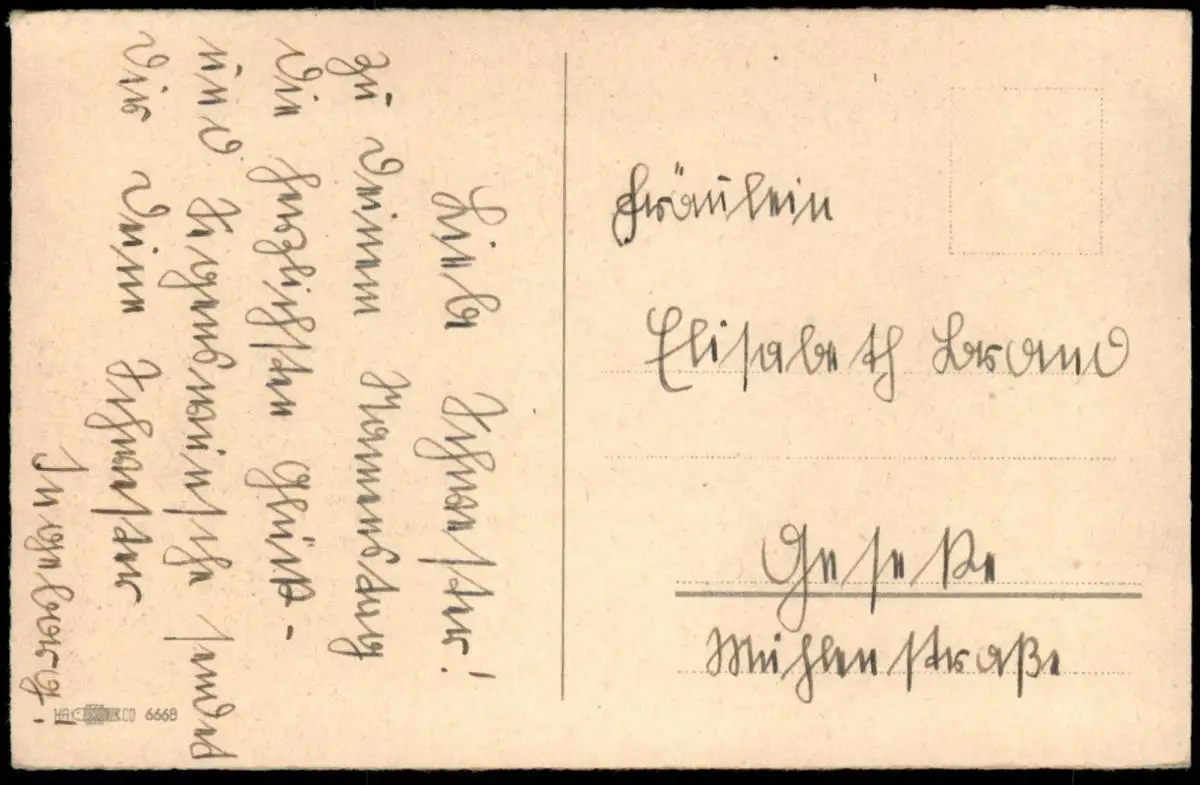 Liebe Schwester!
zu Deinem Namenstag
die herzlichsten Glück-
und Segenswünsche sendet
Dir Deine Schwester
Ingeborg!
Fräulein
Elisabeth Brand
Geseke
Mühlenstraße
6668